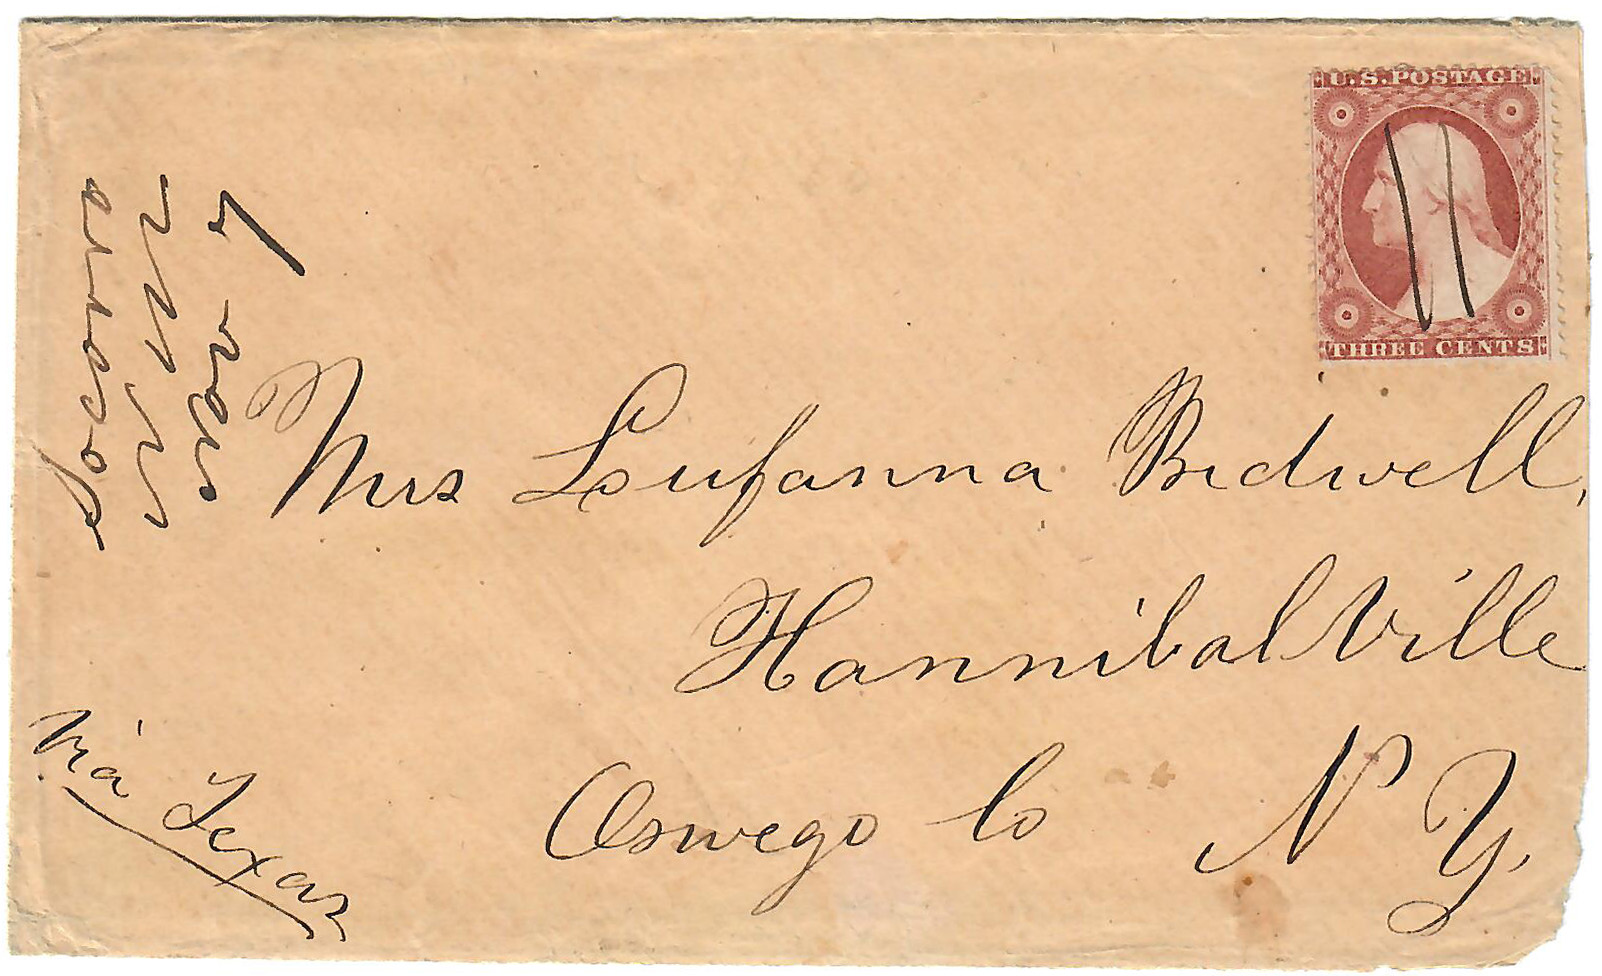 U.S. POSTAGE
THREE CENTS
Socorro
N. M.
Nov 7
Mrs Lufanna Bidwell,
Hannibal Ville
Oswego Co N Y.
Via Texas